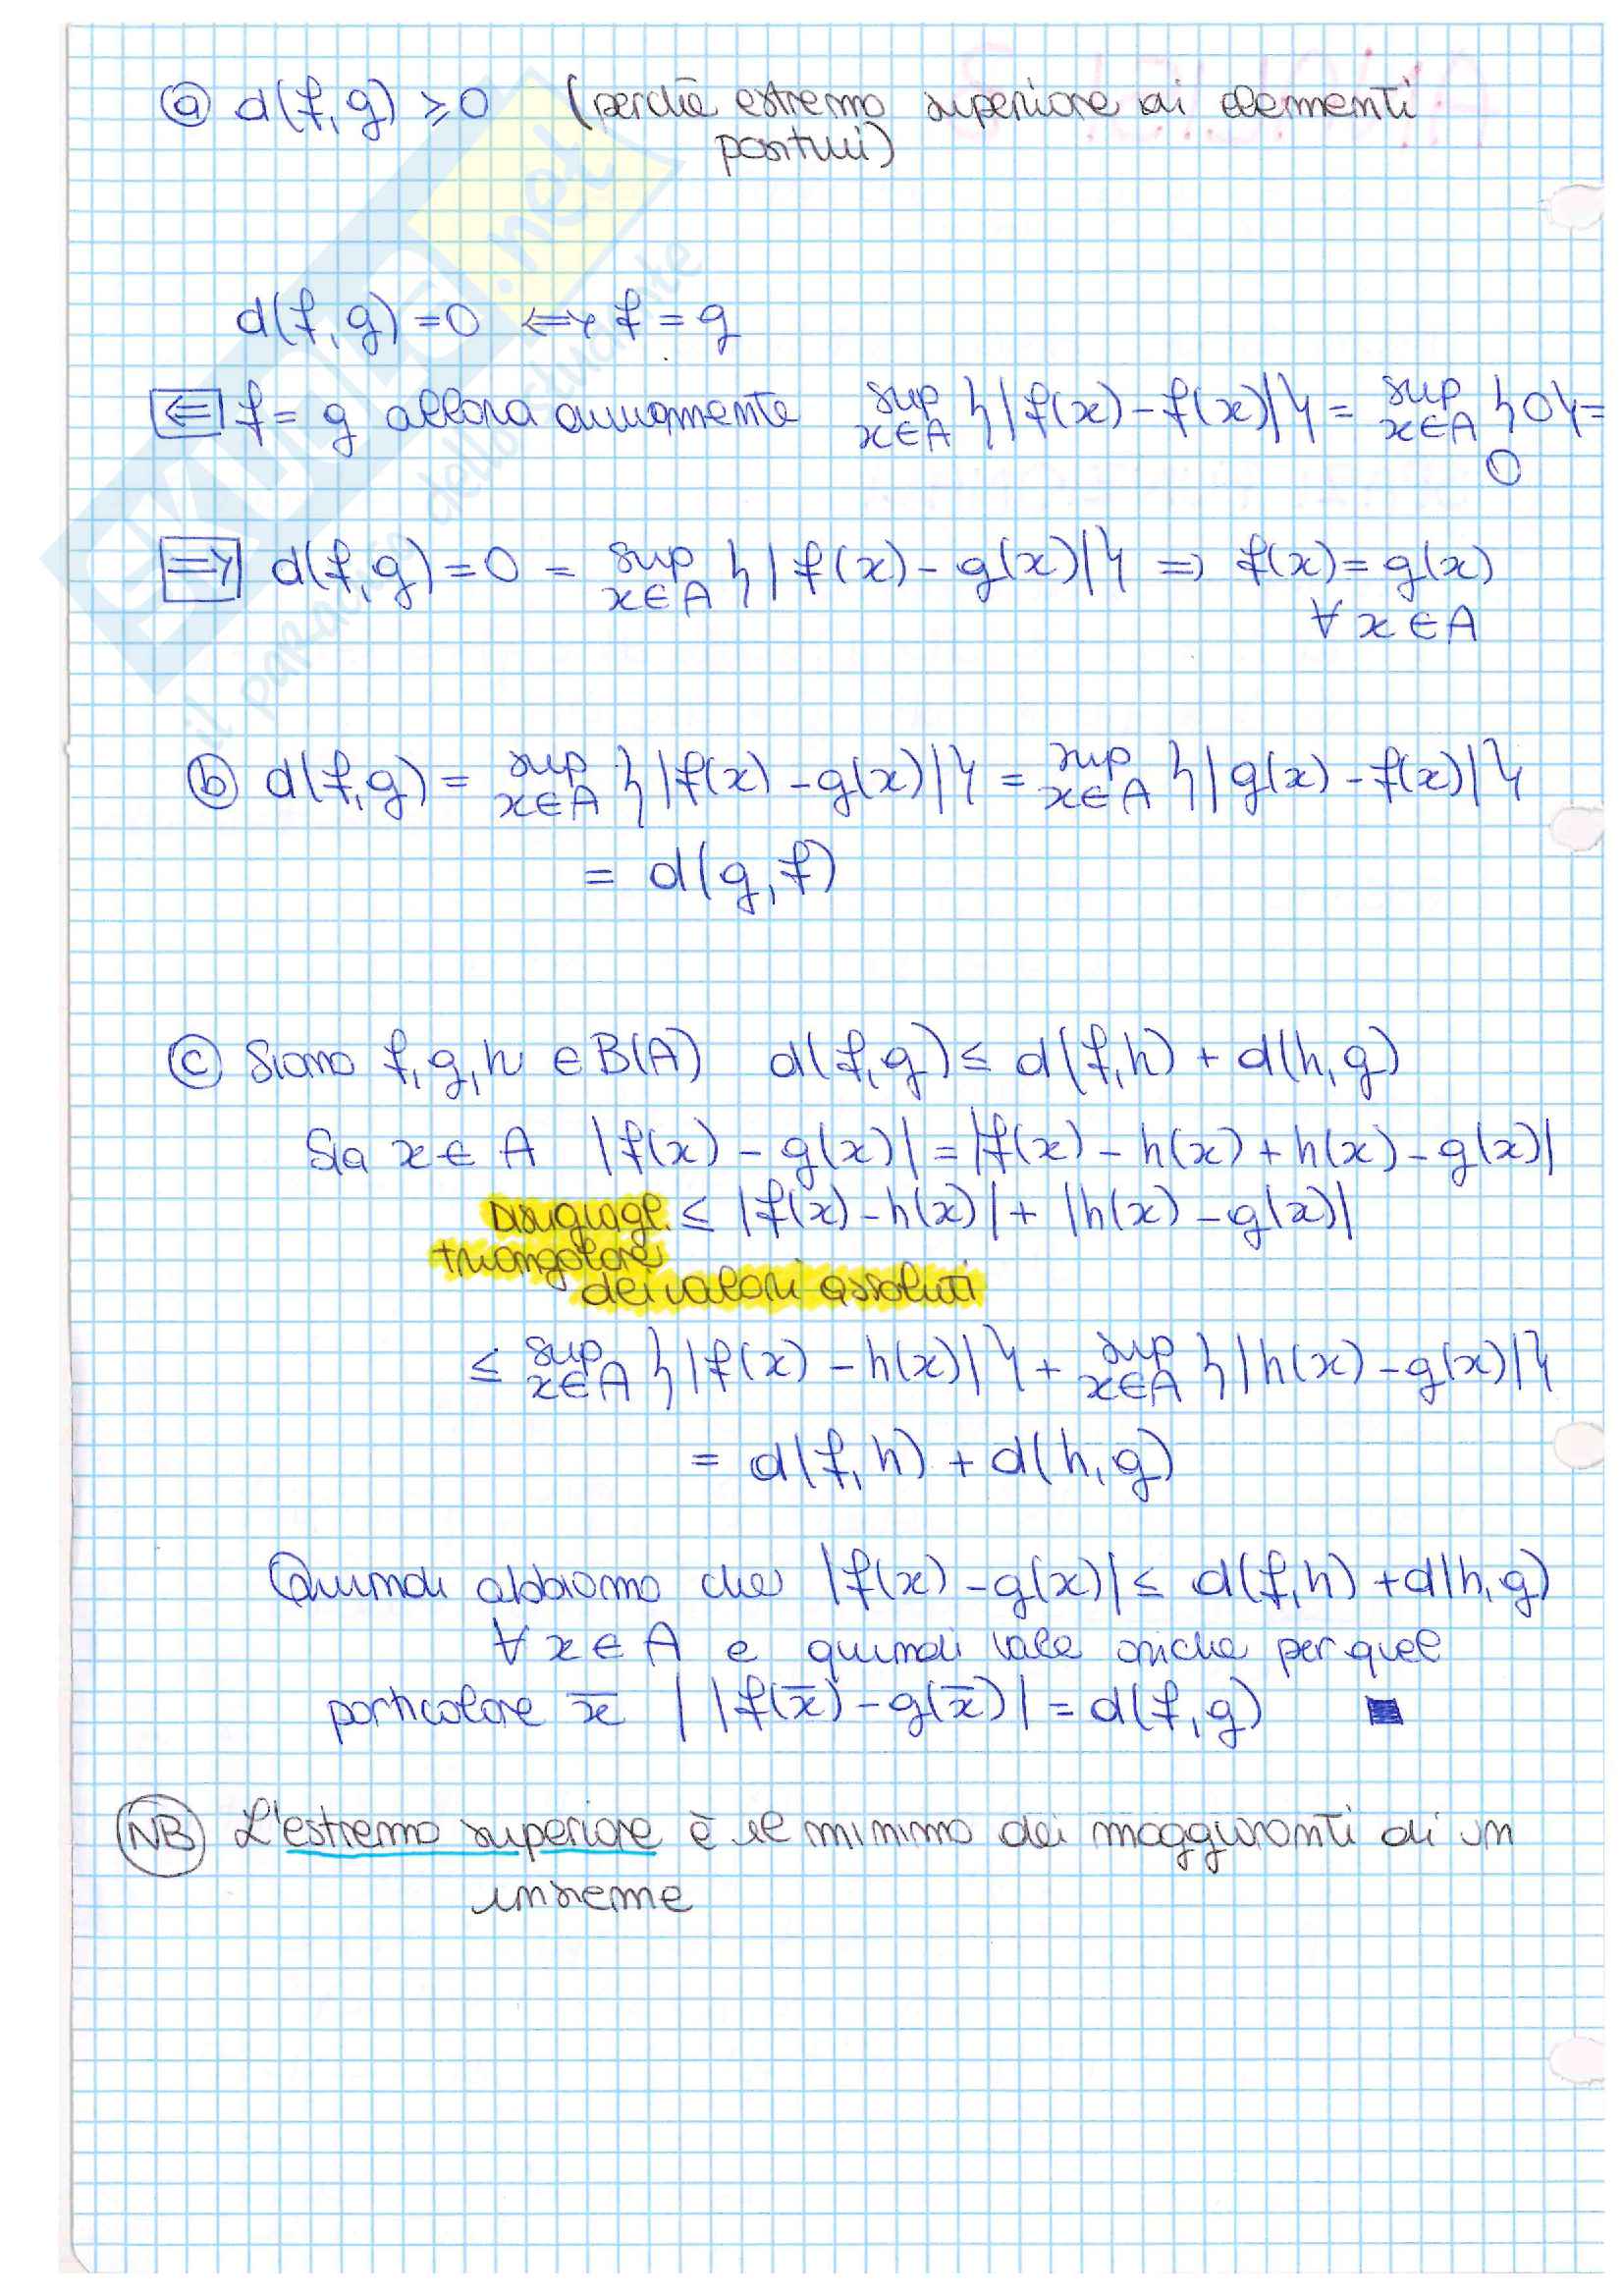 ⓐ d(f,g) ≥ 0 (perchè estremo superiore di elementi
positivi)
d(f,g) = 0 ⟺ f = g
⟸ f = g allora ovviamente sup x∈A {|f(x) - f(x)|} = sup x∈A {0} =
0
⟹ d(f,g) = 0 = sup x∈A {|f(x) - g(x)|} ⟹ f(x) = g(x)
∀ x ∈ A
ⓑ d(f,g) = sup x∈A {|f(x) - g(x)|} = sup x∈A {|g(x) - f(x)|}
= d(g,f)
ⓒ Siano f,g,h ∈ B(A) d(f,g) ≤ d(f,h) + d(h,g)
Sia x ∈ A |f(x) - g(x)| = |f(x) - h(x) + h(x) - g(x)|
Disuguagl. ≤ |f(x) - h(x)| + |h(x) - g(x)|
triangolare
dei valori assoluti
≤ sup x∈A {|f(x) - h(x)|} + sup x∈A {|h(x) - g(x)|}
= d(f,h) + d(h,g)
Quindi abbiamo che |f(x) - g(x)| ≤ d(f,h) + d(h,g)
∀ x ∈ A e quindi vale anche per quel
particolare x̅ | |f(x̅) - g(x̅)| = d(f,g) ■
NB L'estremo superiore è il minimo dei maggioranti di un
insieme
SKUOLA.net
il paradiso dello studente